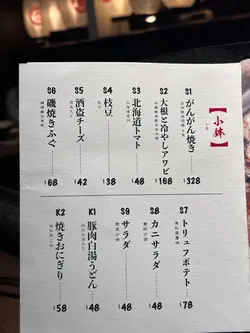 【小鉢】
S1
がんがん焼き
$328
S2
大根と冷やしアワビ
$168
S3
北海道トマト
$48
S4
枝豆
$38
S5
酒盗チーズ
$42
S6
磯焼きふぐ
$68
S7
トリュフポテト
$78
S8
カニサラダ
$48
S9
サラダ
$48
K1
豚肉白湯うどん
$48
K2
焼きおにぎり
$58